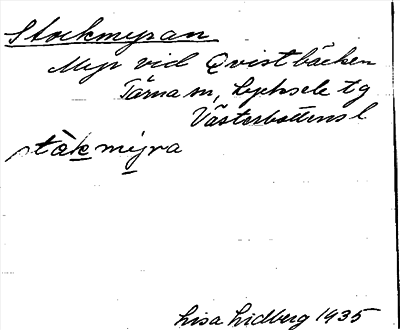 Stockmyran
Myr vid Qvistbäcken
Tärna sn, Lycksele tg
Västerbottens l
stòkmýra
Lisa Lidberg 1935